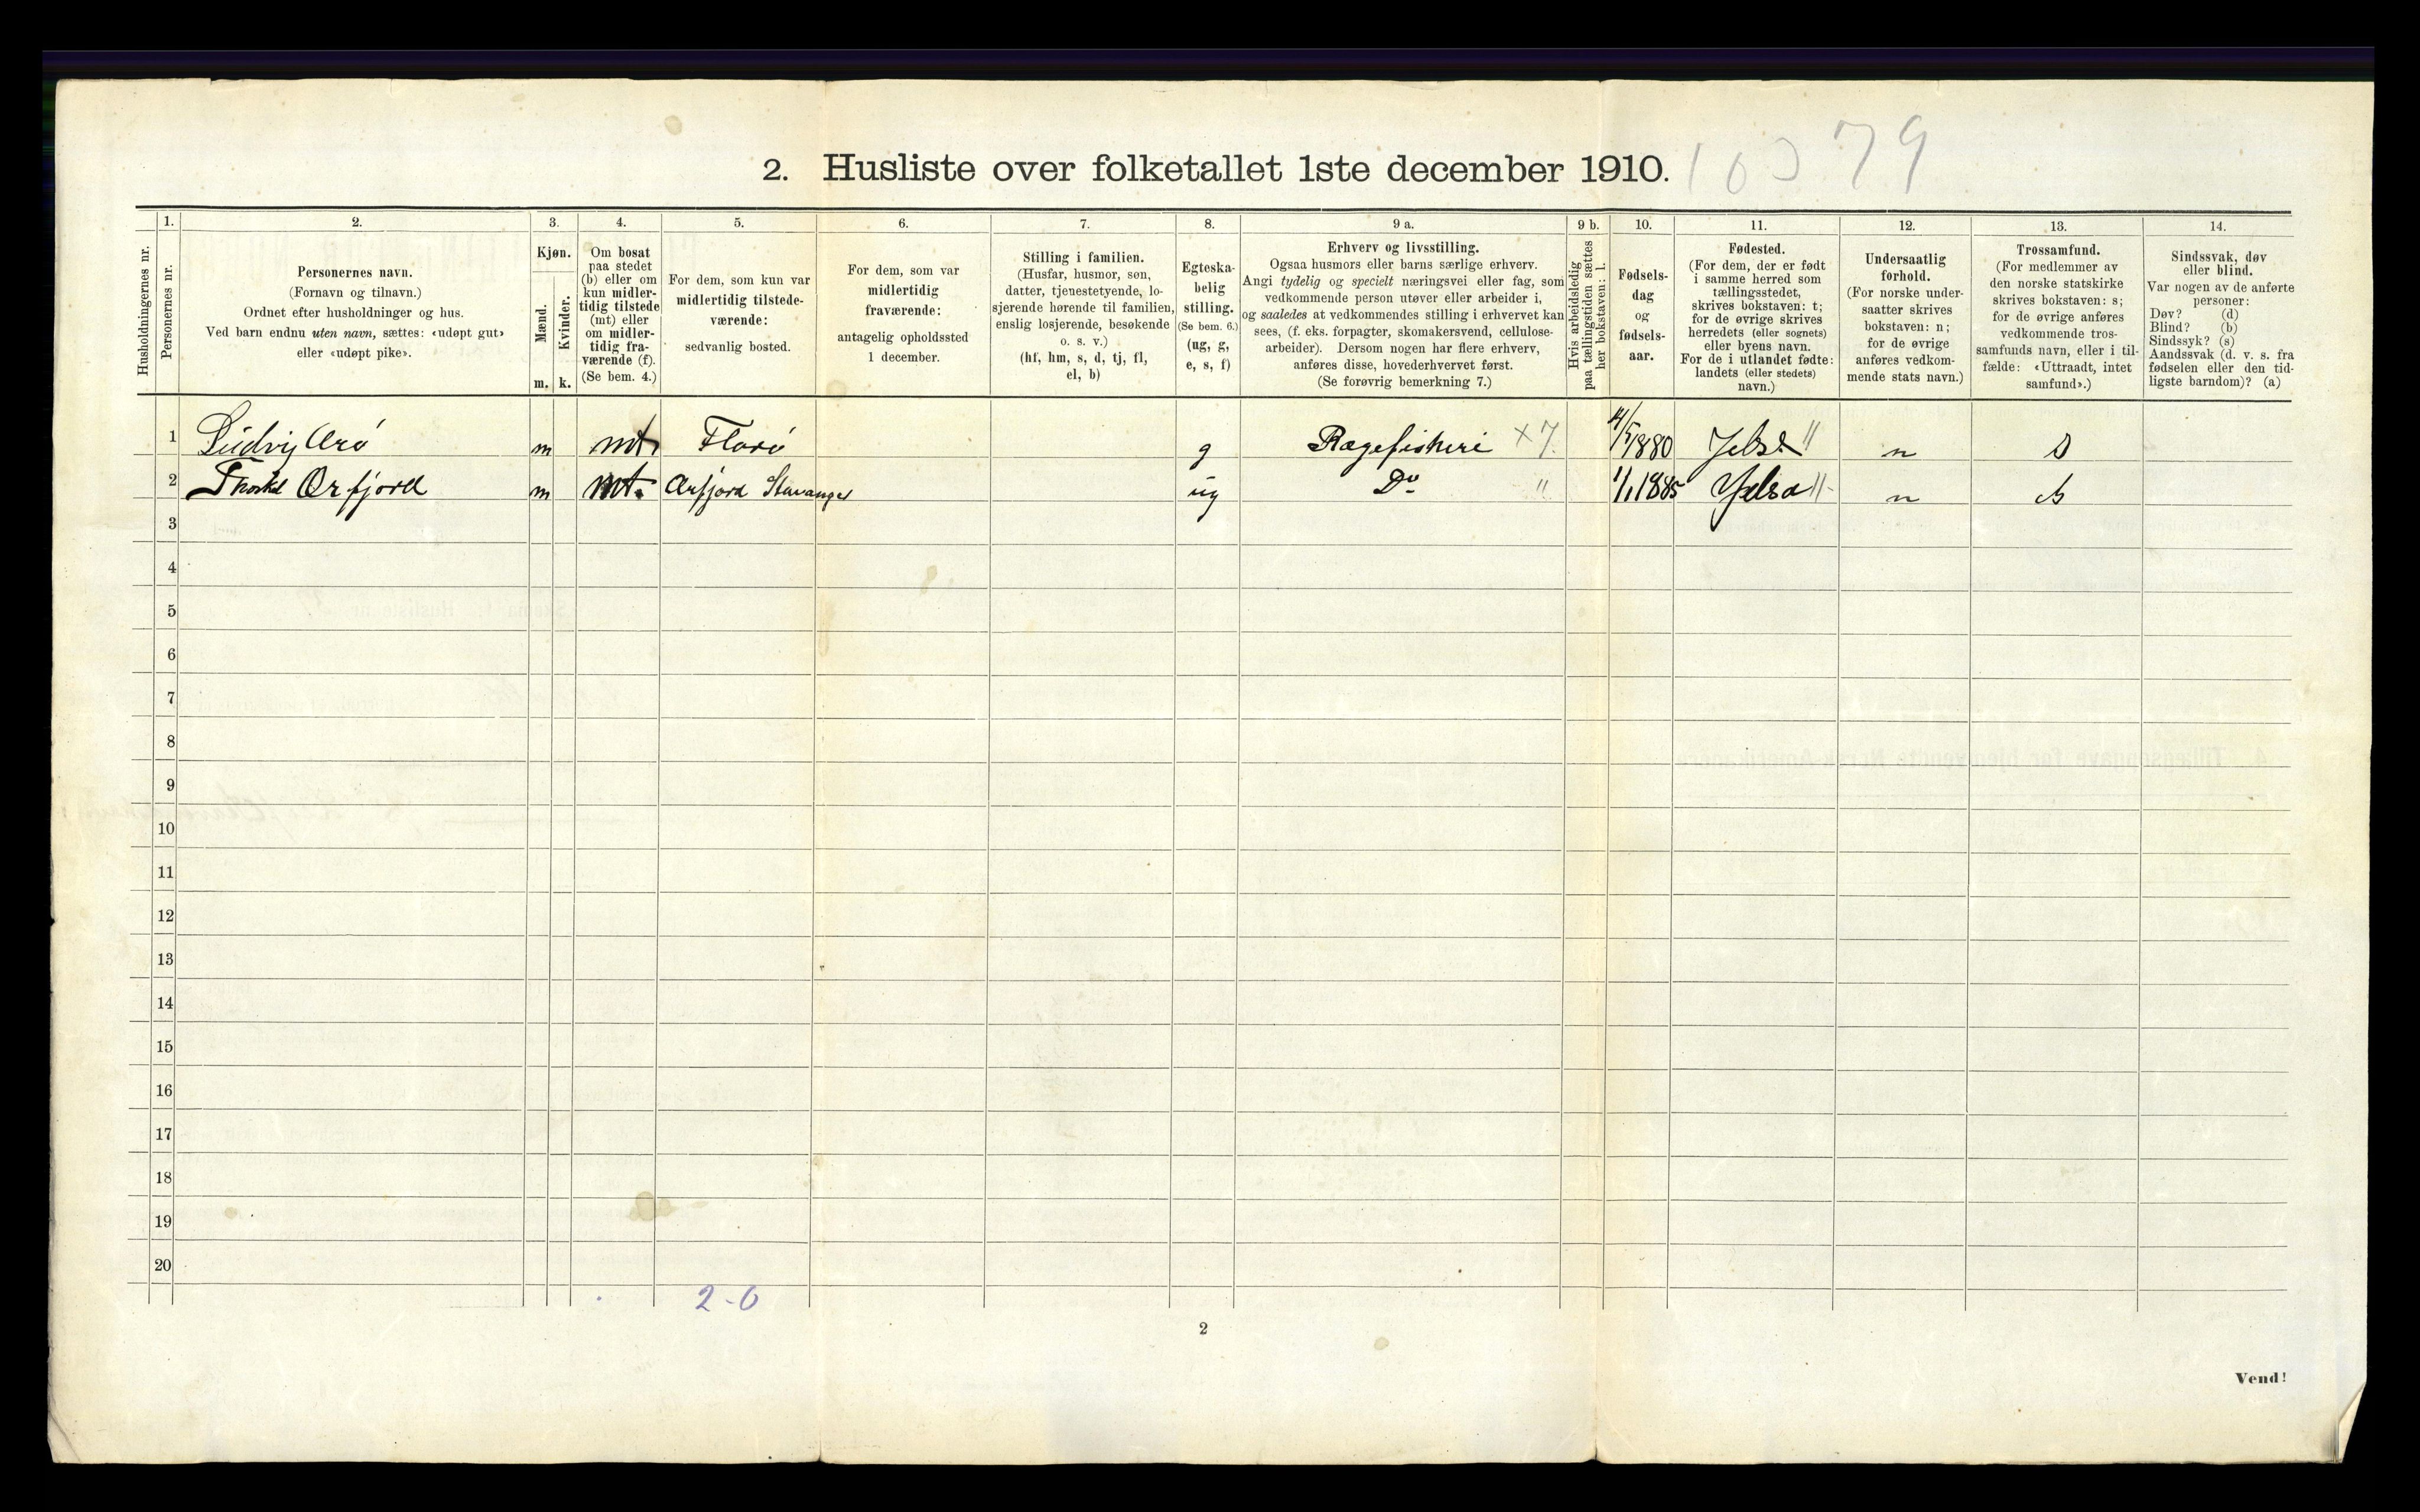 2. Husliste over folketallet 1ste december 1910.
1.
2.
3.
4.
5.
6.
7.
8.
9 a.
9 b.
10.
11.
12.
13.
14.
Husholdningernes nr.
Personernes nr.
Personernes navn.
(Fornavn og tilnavn.)
Ordnet efter husholdninger og hus.
Ved barn endnu uten navn, sættes: «udøpt gut»
eller «udøpt pike».
Kjøn.
Mænd.
Kvinder.
m.
k.
Om bosat
paa stedet
(b) eller om
kun midler-
tidig tilstede
(mt) eller
om midler-
tidig fra-
værende (f).
(Se bem. 4.)
For dem, som kun var
midlertidig tilstede-
værende:
sedvanlig bosted.
For dem, som var
midlertidig
fraværende:
antagelig opholdssted
1 december.
Stilling i familien.
(Husfar, husmor, søn,
datter, tjenestetyende, lo-
sjerende hørende til familien,
enslig losjerende, besøkende
o. s. v.)
(hf, hm, s, d, tj, fl,
el, b)
Egteska-
belig
stilling.
(Se bem. 6.)
(ug, g,
e, s, f)
Erhverv og livsstilling.
Ogsaa husmors eller barns særlige erhverv.
Angi tydelig og specielt næringsvei eller fag, som
vedkommende person utøver eller arbeider i,
og saaledes at vedkommendes stilling i erhvervet kan
sees, (f. eks. forpagter, skomakersvend, cellulose-
arbeider). Dersom nogen har flere erhverv,
anføres disse, hovederhvervet først.
(Se forøvrig bemerkning 7.)
Hvis arbeidsledig
paa tællingstiden sættes
her bokstaven: l.
Fødsels-
dag
og
fødsels-
aar.
Fødested.
(For dem, der er født
i samme herred som
tællingsstedet,
skrives bokstaven: t;
for de øvrige skrives
herredets (eller sognets)
eller byens navn.
For de i utlandet fødte:
landets (eller stedets)
navn.)
Undersaatlig
forhold.
(For norske under-
saatter skrives
bokstaven: n;
for de øvrige
anføres vedkom-
mende stats navn.)
Trossamfund.
(For medlemmer av
den norske statskirke
skrives bokstaven: s;
for de øvrige anføres
vedkommende tros-
samfunds navn, eller i til-
fælde: «Uttraadt, intet
samfund».)
Sindssvak, døv
eller blind.
Var nogen av de anførte
personer:
Døv? (d)
Blind? (b)
Sindssyk? (s)
Aandssvak (d. v. s. fra
fødselen eller den tid-
ligste barndom)? (a)
1 Ludvig m mt Florø g × 7. 1880 Jelse " n s
2 Ørfjord m mt. Ørfjord Stavanger ug Do " 1/1 1885 Jelsa " n s
3
4
5
6
7
8
9
10
11
12
13
14
15
16
17
18
19
20
2-0
2
Vend!